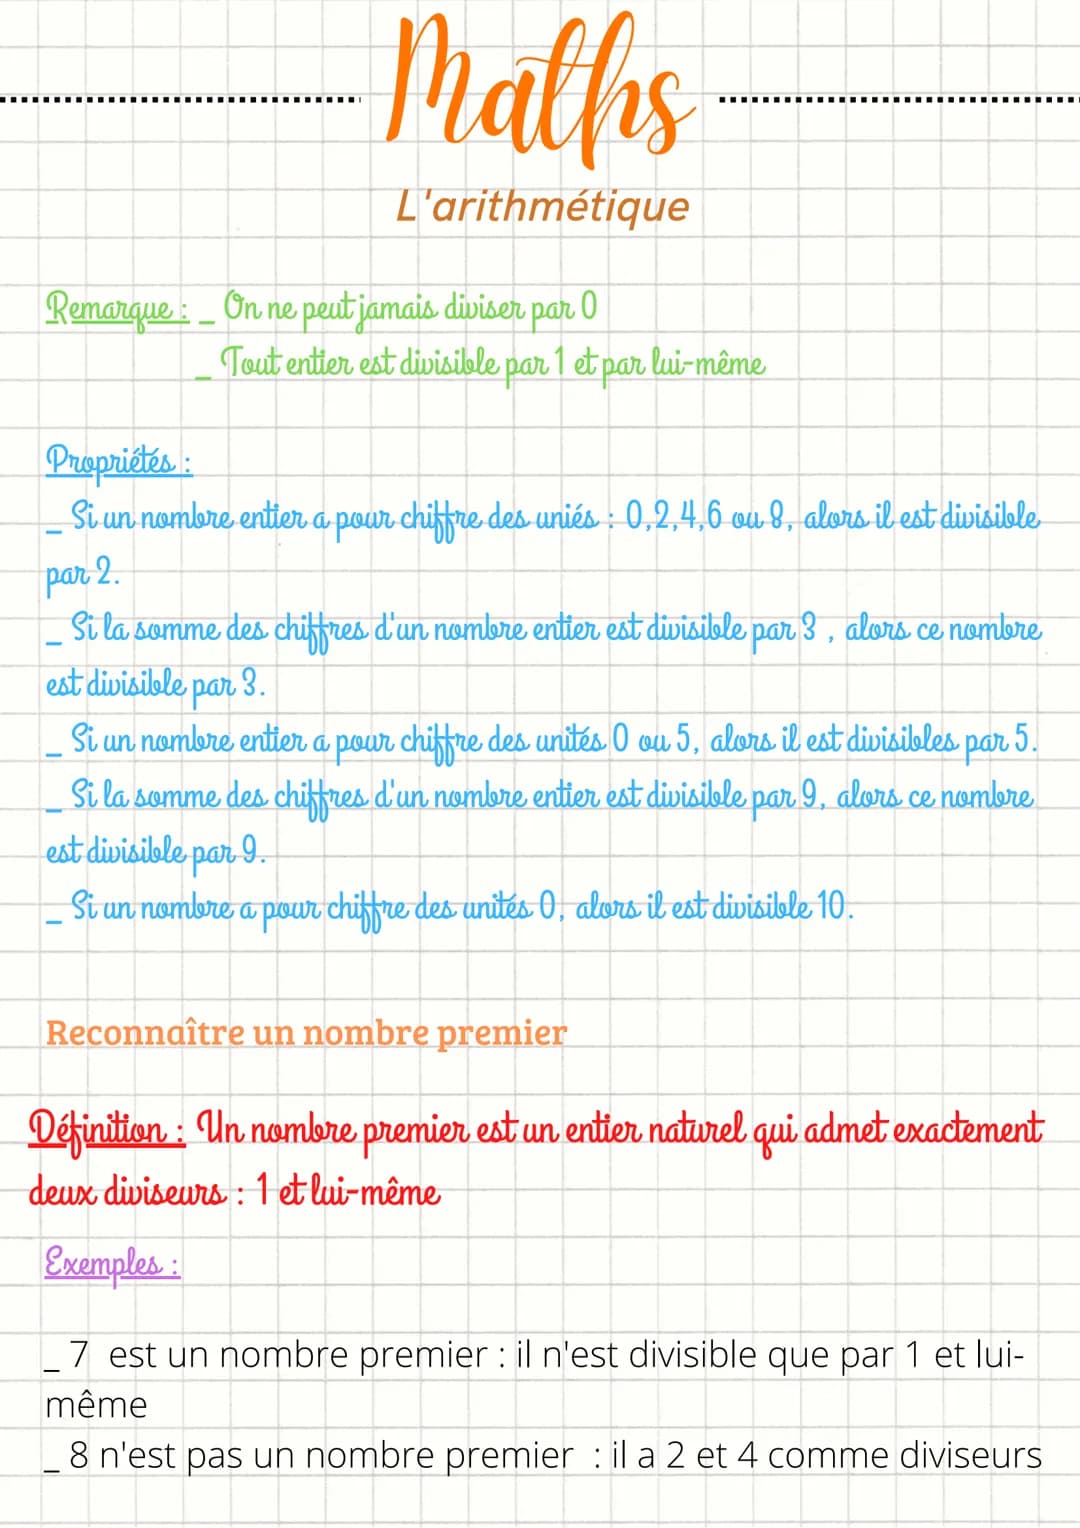 Maths
L'arithmétique
Remarque : _ On ne peut jamais diviser par 0
_ Tout entier est divisible par 1 et par lui-même
Propriétés :
_ Si un nombre entier a pour chiffre des uniés : 0,2,4,6 ou 8, alors il est divisible
par 2.
_ Si la somme des chiffres d'un nombre entier est divisible par 3 , alors ce nombre
est divisible par 3.
_ Si un nombre entier a pour chiffre des unités 0 ou 5, alors il est divisibles par 5.
_ Si la somme des chiffres d'un nombre entier est divisible par 9, alors ce nombre
est divisible par 9.
_ Si un nombre a pour chiffre des unités 0, alors il est divisible 10.
Reconnaître un nombre premier
Définition : Un nombre premier est un entier naturel qui admet exactement
deux diviseurs : 1 et lui-même
Exemples :
_ 7 est un nombre premier : il n'est divisible que par 1 et lui-
même
_ 8 n'est pas un nombre premier : il a 2 et 4 comme diviseurs